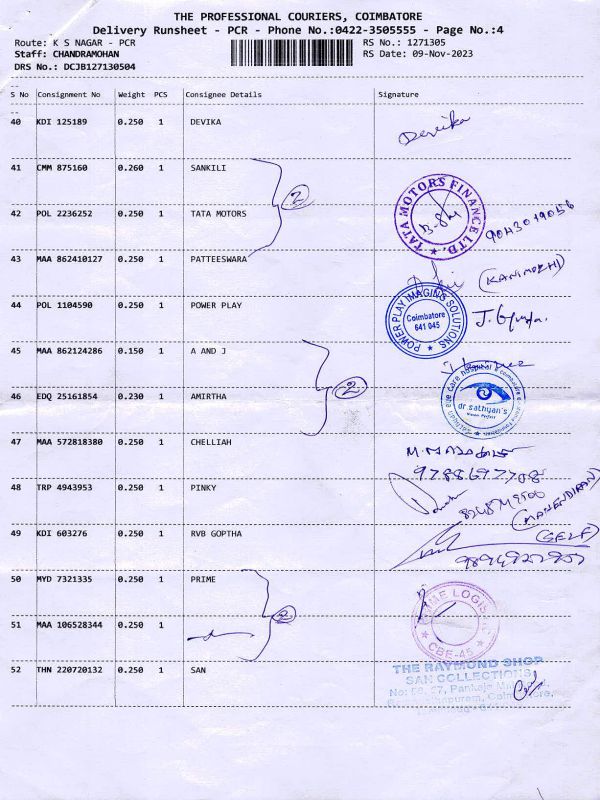 THE PROFESSIONAL COURIERS, COIMBATORE
Delivery Runsheet - PCR - Phone No.:0422-3505555 - Page No.:4
Route: K S NAGAR - PCR RS No.: 1271305
Staff: CHANDRAMOHAN RS Date: 09-Nov-2023
DRS No.: DCJB127130504
S No Consignment No Weight PCS Consignee Details Signature
40 KDI 125189 0.250 1 DEVIKA
Devika
41 CMM 875160 0.260 1 SANKILI
2
TATA MOTORS FINANCE LTD.
42 POL 2236252 0.250 1 TATA MOTORS
9043019056
43 MAA 862410127 0.250 1 PATTEESWARA
(KANIMOZHI)
44 POL 1104590 0.250 1 POWER PLAY
POWER PLAY IMAGING SOLUTIONS
Coimbatore
641 045
45 MAA 862124286 0.150 1 A AND J
2
46 EDQ 25161854 0.230 1 AMIRTHA
dr.sathyan's
47 MAA 572818380 0.250 1 CHELLIAH
9788697708
48 TRP 4943953 0.250 1 PINKY
49 KDI 603276 0.250 1 RVB GOPTHA
(SELF)
50 MYD 7321335 0.250 1 PRIME
2
PRIME LOGIS
CBE-45
51 MAA 106528344 0.250 1
52 THN 220720132 0.250 1 SAN
THE RAYMOND SHOP
SAN COLLECTIONS